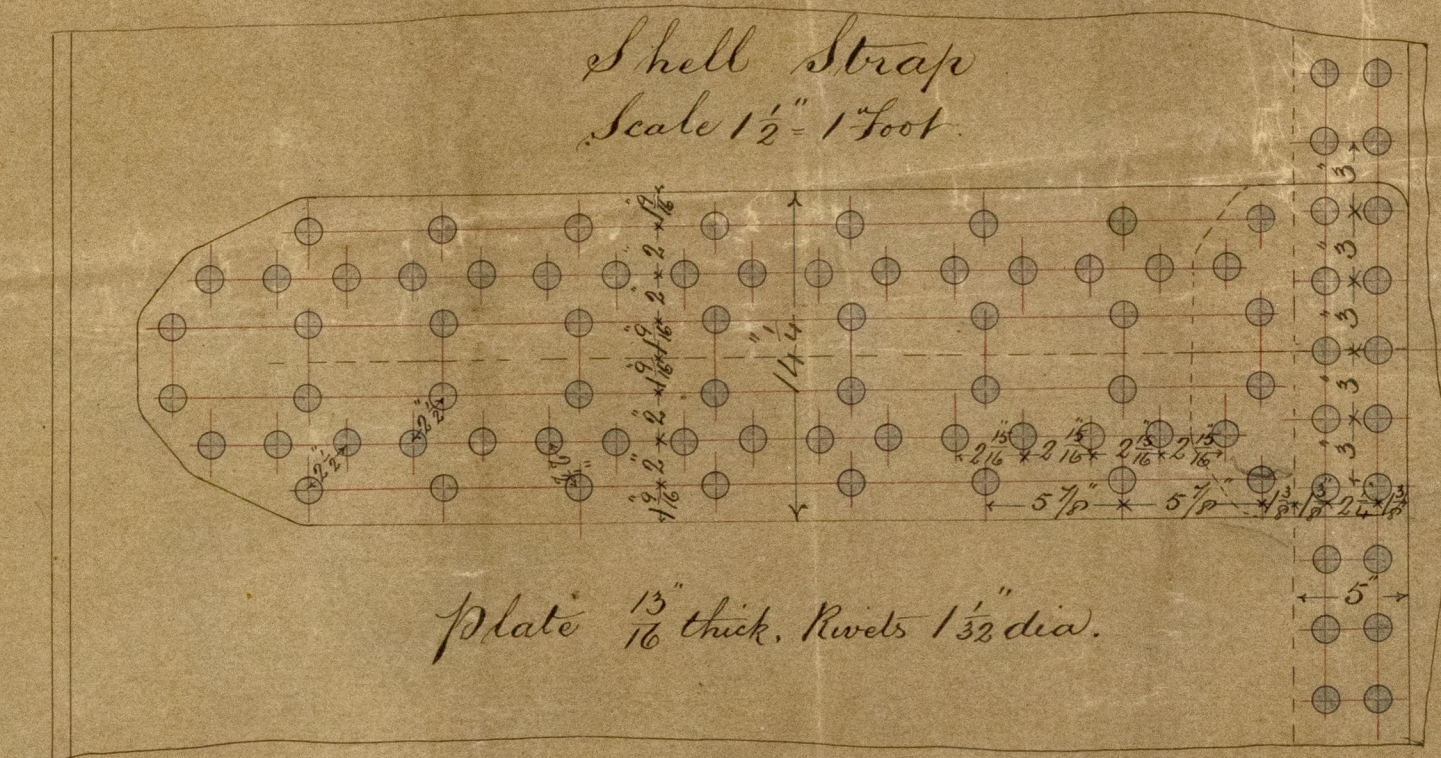 Shell Strap
Scale 1 1/2" = 1 Foot
1 9/16" × 2" × 2" × 1 9/16" × 1 9/16" × 2" × 2" × 1 9/16"
14 1/4"
3" × 3" × 3" × 3" × 3"
2 1/2"
2 1/2"
2 15/16" × 2 15/16" × 2 15/16" × 2 15/16"
5 7/8" × 5 7/8" × 1 3/8" × 1 3/8" × 2 1/4" × 1 3/8"
5"
Plate 13/16" thick. Rivets 1 1/32" dia.